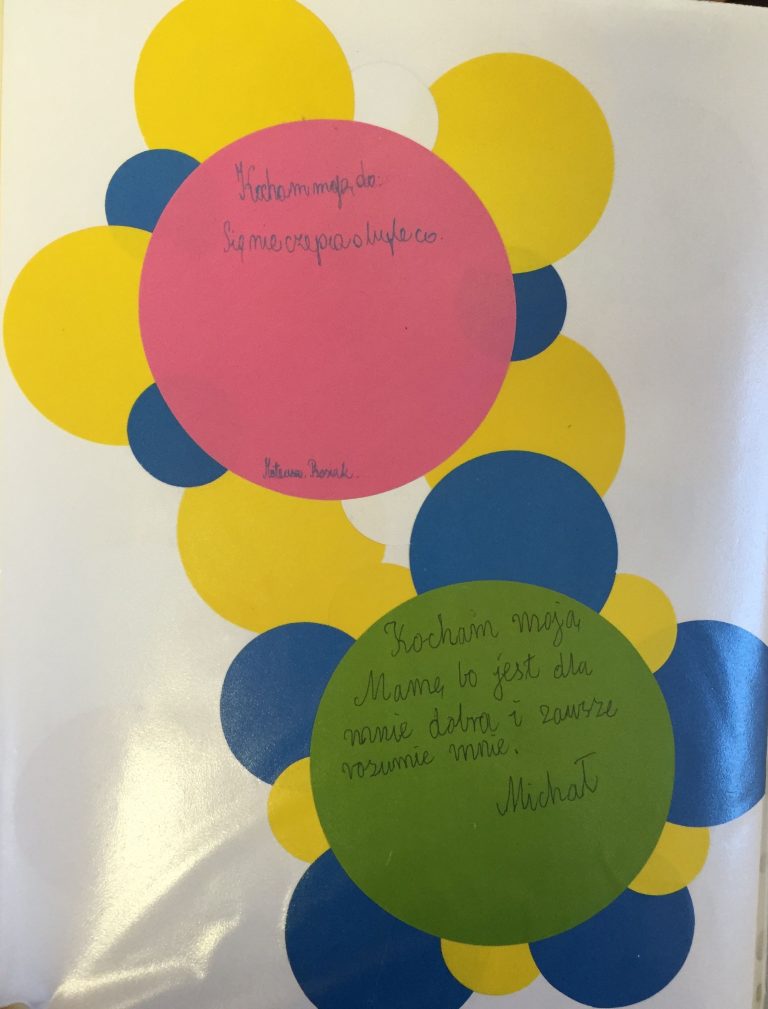 Kocham moją do
Się nie czepia o byle co.
Mateusz
Kocham moją
Mamę, bo jest dla
mnie dobra i zawsze
rozumie mnie.
Michał